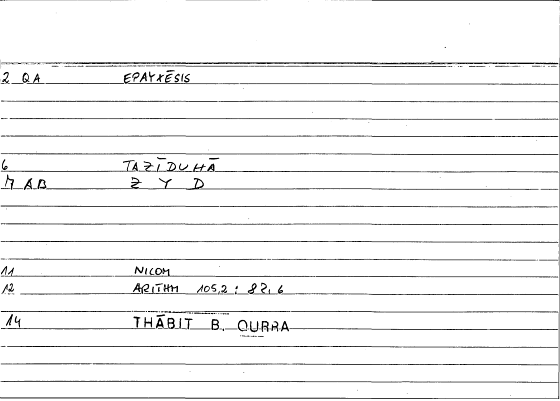 2 QA EPAYXĒSIS
6 TAZĪDUHĀ
7 AB Z Y D
11 NICOM
12 ARITHM 105,2 : 82,6
14 THĀBIT B. QURRA